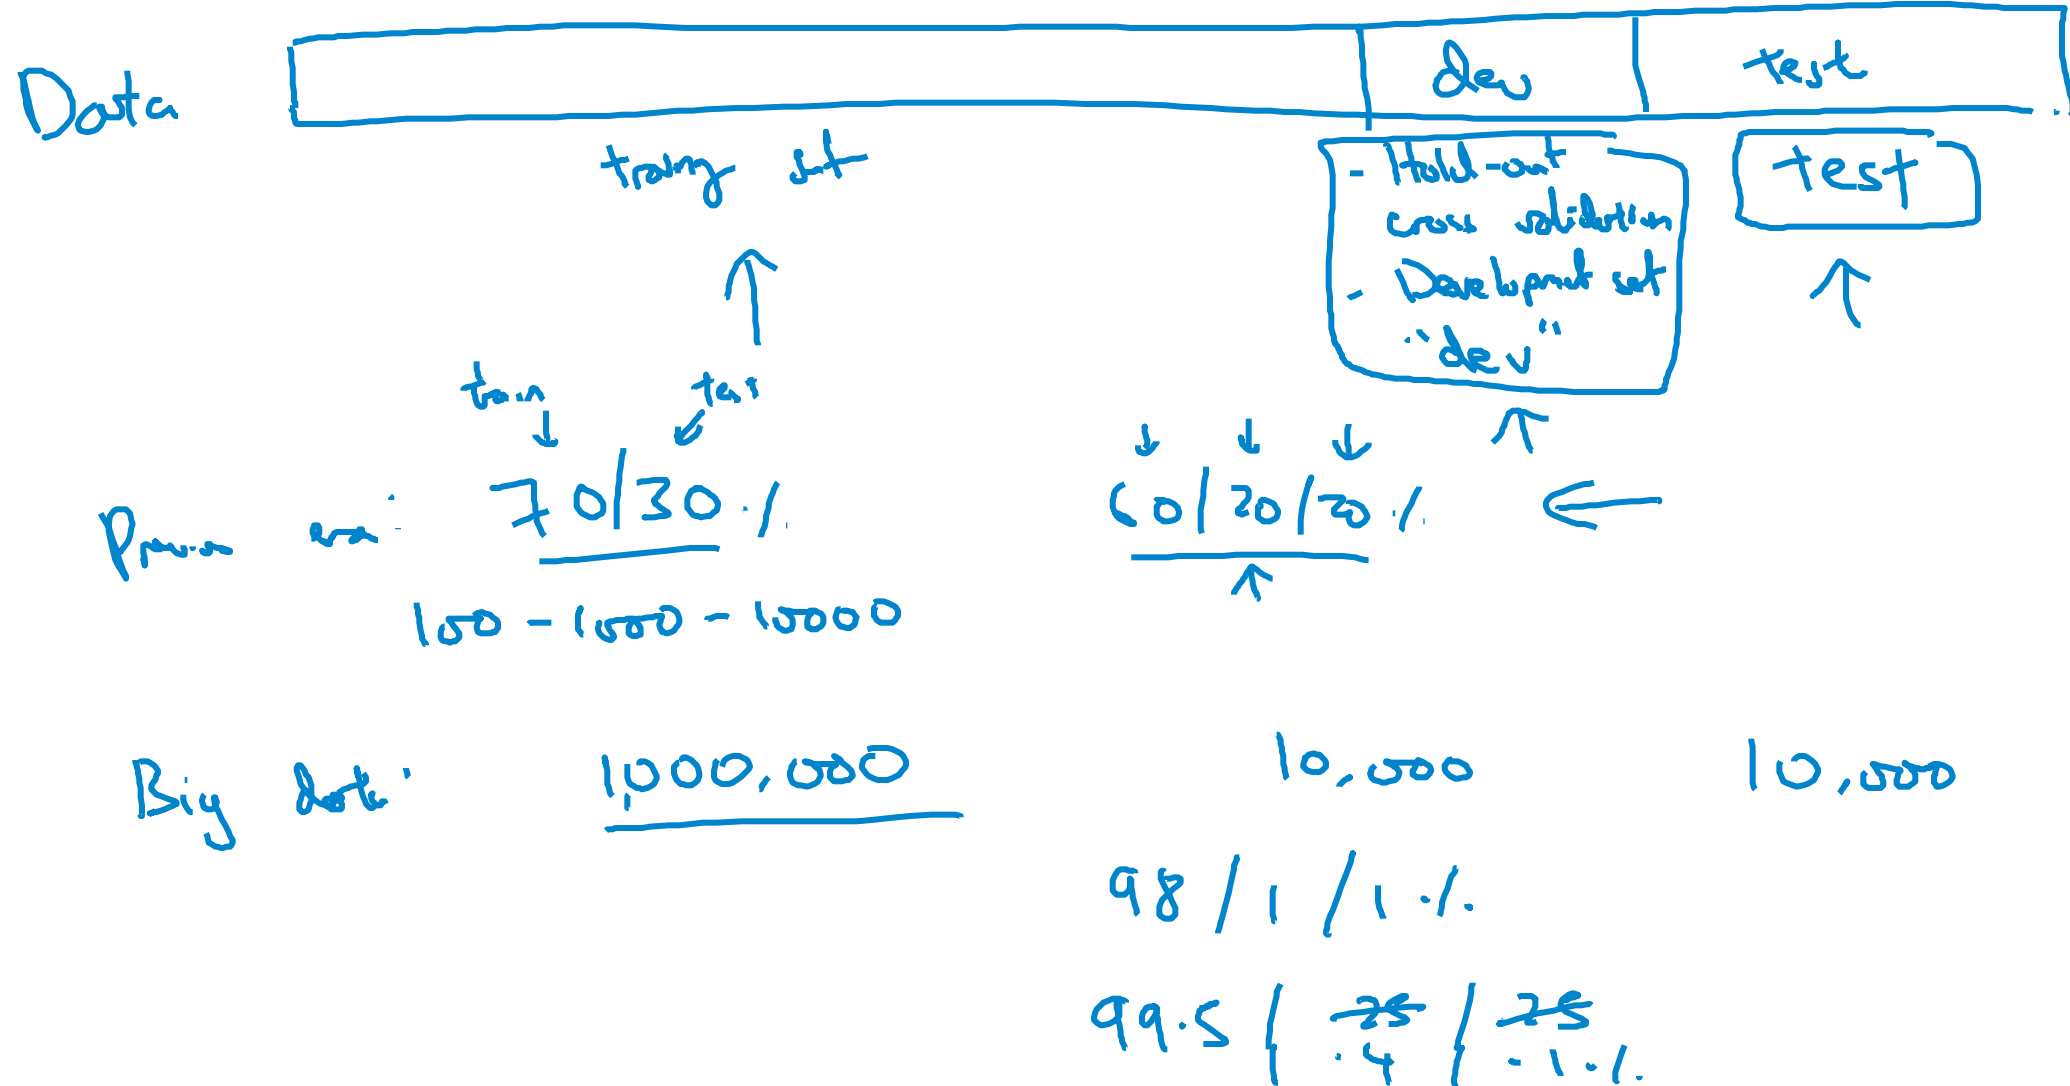 Data
dev
test
training set
- Hold-out
cross validation
- Development set
"dev"
test
train test
Previous era: 70/30 % 60/20/20 %
100 - 1000 - 10000
Big data: 1,000,000 10,000 10,000
98 / 1 / 1 %
99.5 / 25 / 25
.4 / .1 %